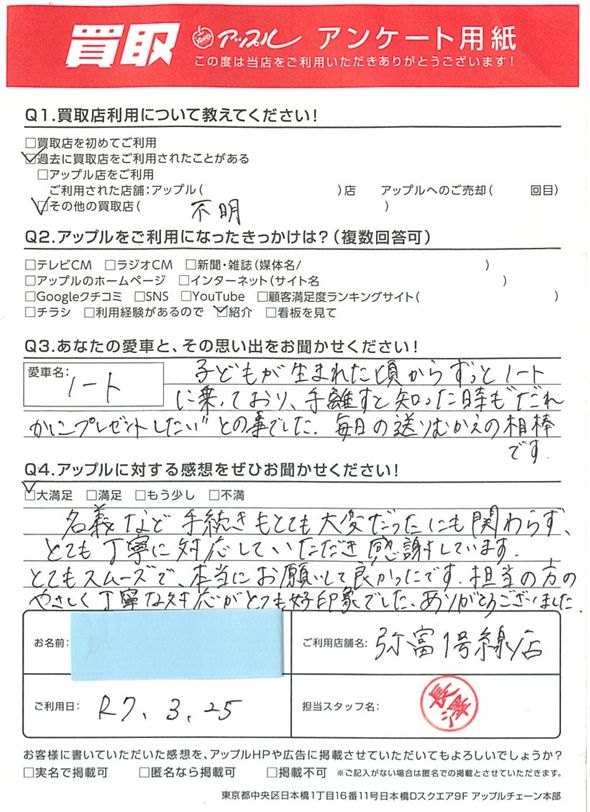 買取 アップル アンケート用紙
この度は当店をご利用いただきありがとうございます!
Q1.買取店利用について教えてください!
□買取店を初めてご利用
☑過去に買取店をご利用されたことがある
□アップル店をご利用
ご利用された店舗:アップル( )店 アップルへのご売却( 回目)
☑その他の買取店( 不明 )
Q2.アップルをご利用になったきっかけは?(複数回答可)
□テレビCM □ラジオCM □新聞・雑誌(媒体名/ )
□アップルのホームページ □インターネット(サイト名 )
□Googleクチコミ □SNS □YouTube □顧客満足度ランキングサイト( )
□チラシ □利用経験があるので ☑紹介 □看板を見て
Q3.あなたの愛車と、その思い出をお聞かせください!
愛車名: ノート
子どもが生まれた頃からずっとノート
に乗っており、手離すと知った時も"だれ
かにプレゼントしたい"との事でした。毎日の送りむかえの相棒
です。
Q4.アップルに対する感想をぜひお聞かせください!
☑大満足 □満足 □もう少し □不満
名義など手続きもとても大変だったにも関わらず、
とても丁寧に対応していただき感謝しています。
とてもスムーズで、本当にお願いして良かったです。担当の方の
やさしく丁寧な対応がとても好印象でした。ありがとうございました。
お名前:
ご利用店舗名: 弥富1号線店
ご利用日: R7.3.25
担当スタッフ名: 長澤
お客様に書いていただいた感想を、アップルHPや広告に掲載させていただいてもよろしいでしょうか?
□実名で掲載可 □匿名なら掲載可 □掲載不可 ※ご記入がない場合は匿名での掲載とさせていただきます。
東京都中央区日本橋1丁目16番11号日本橋Dスクエア9F アップルチェーン本部